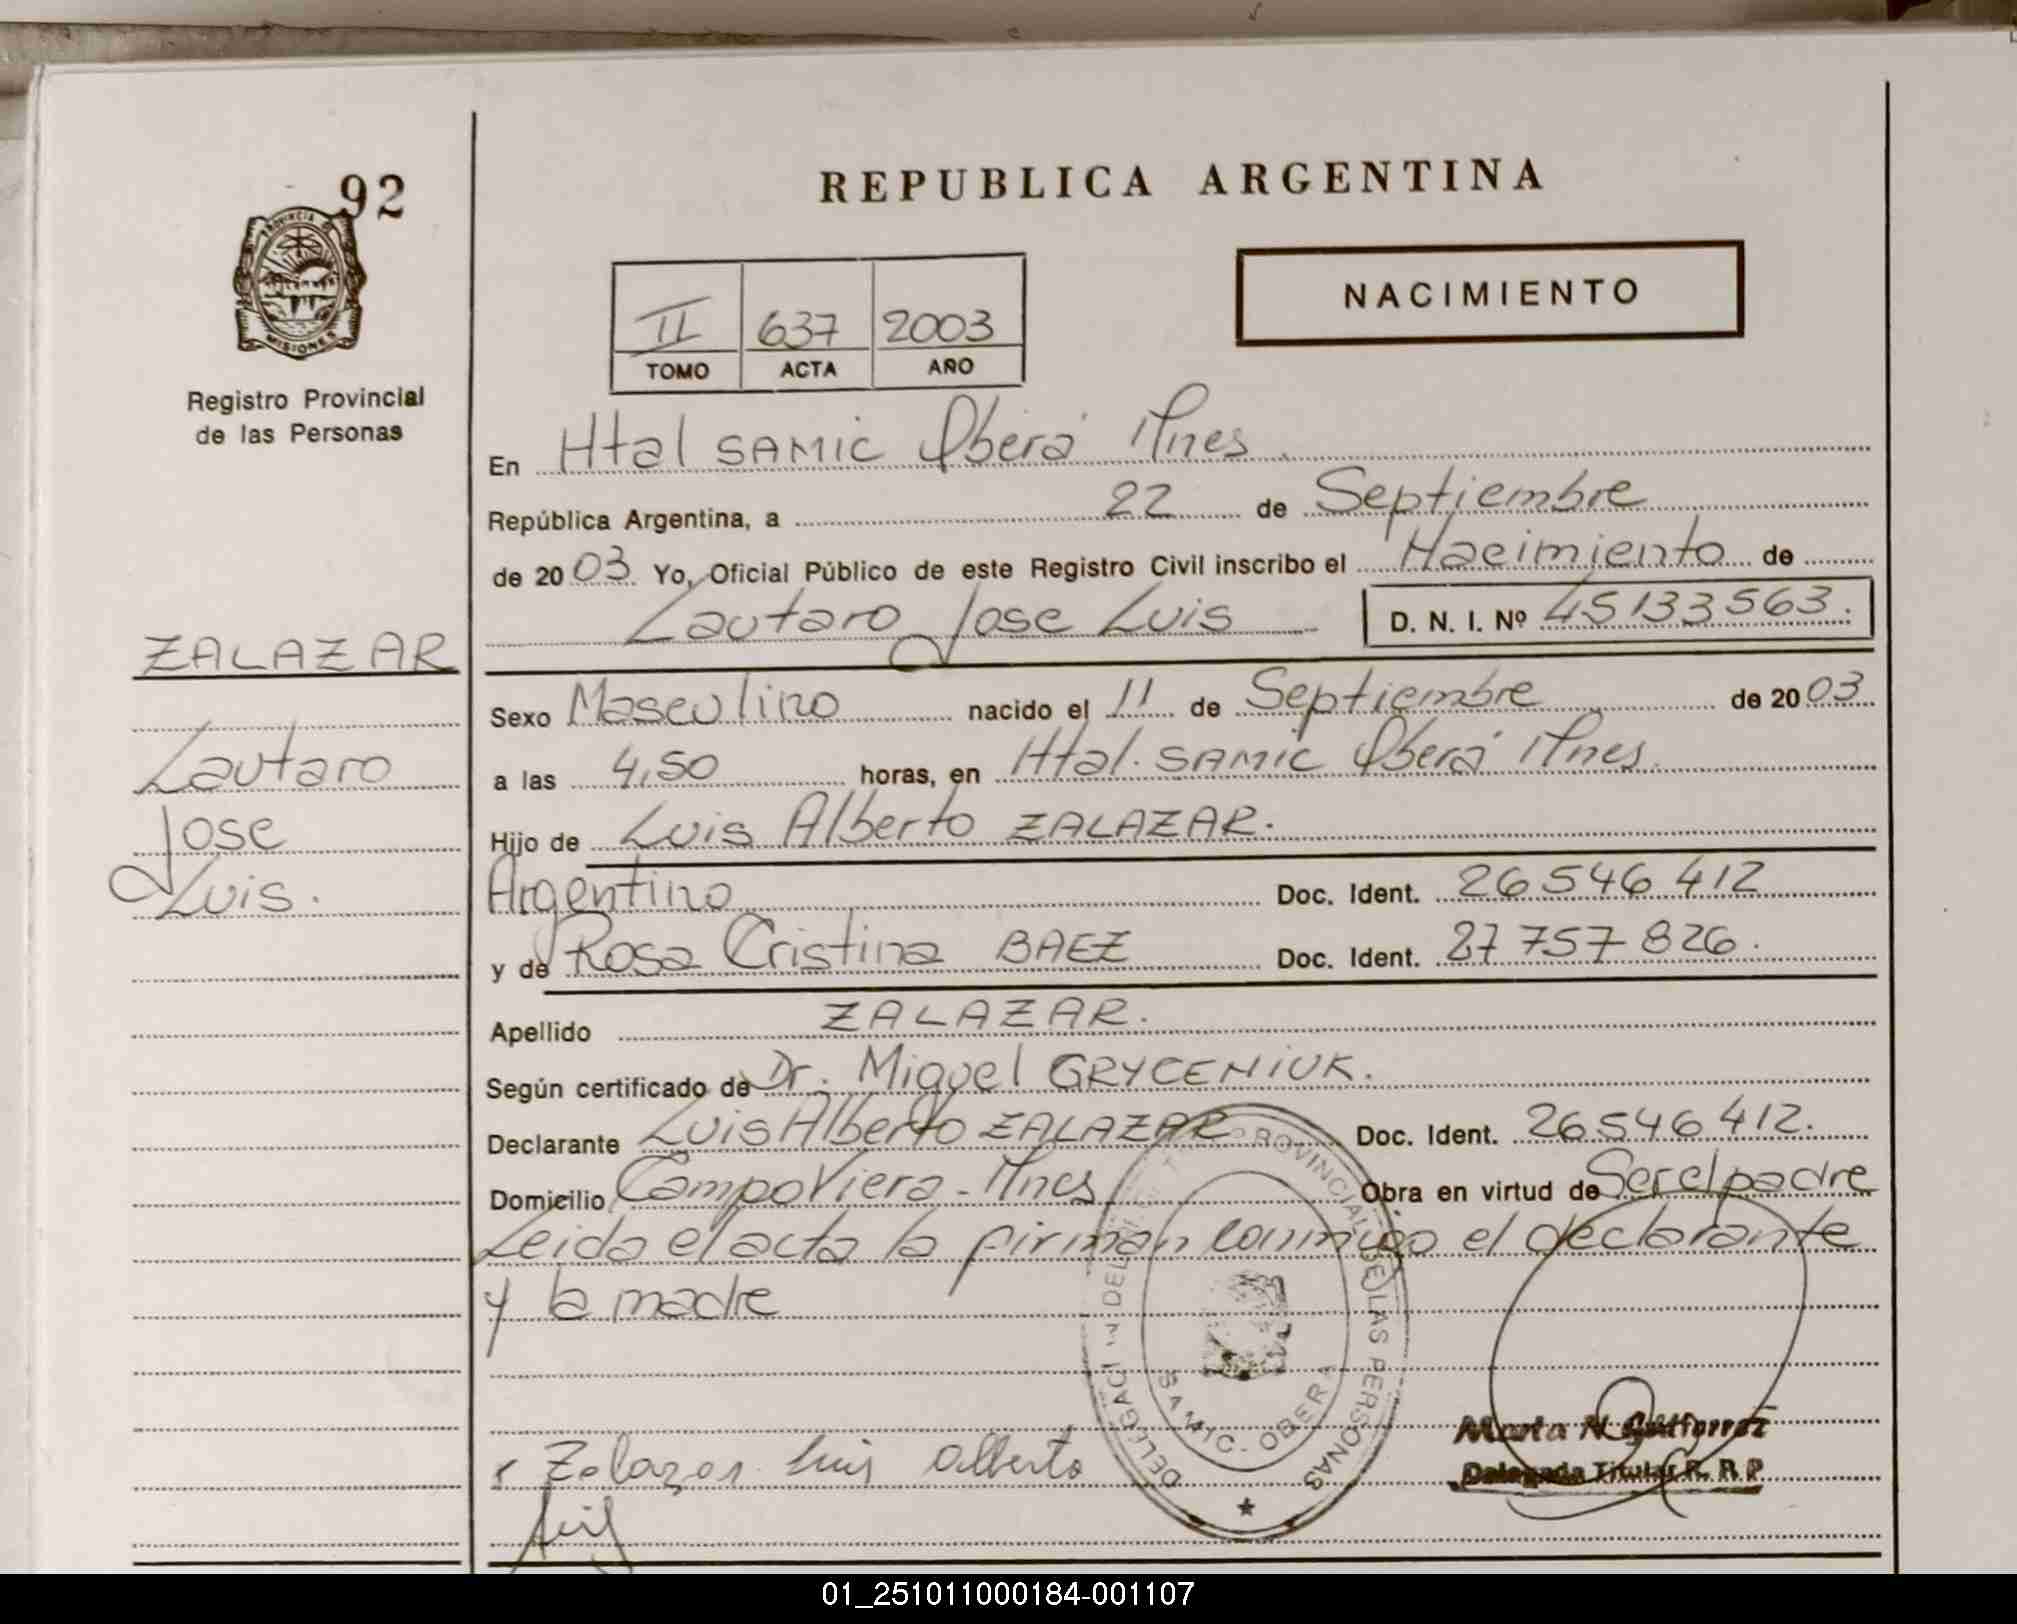 92
PROVINCIA DE
MISIONES
Registro Provincial
de las Personas
ZALAZAR
Lautaro
Jose
Luis.
REPUBLICA ARGENTINA
II 637 2003
TOMO ACTA AÑO
NACIMIENTO
En Htal SAMIC Oberá Mnes
República Argentina, a 22 de Septiembre
de 2003 Yo, Oficial Público de este Registro Civil inscribo el Nacimiento de
Lautaro Jose Luis D. N. I. Nº 45133563.
Sexo Masculino nacido el 11 de Septiembre de 2003
a las 4,50 horas, en Htal. SAMIC Oberá Mnes.
Hijo de Luis Alberto ZALAZAR.
Argentino Doc. Ident. 26546412
y de Rosa Cristina BAEZ Doc. Ident. 27757826.
Apellido ZALAZAR.
Según certificado de Dr. Miguel GRYCENIUK.
Declarante Luis Alberto ZALAZAR Doc. Ident. 26546412.
Domicilio Campo Viera - Mnes Obra en virtud de Ser el padre
Leida el acta la firman conmigo el declarante
y la madre
PROVINCIAL DE LAS PERSONAS
SAMIC - OBERA
Zalazar Luis Alberto
Marta N. Gutierrez
Delegada Titular R. R P
01_251011000184-001107